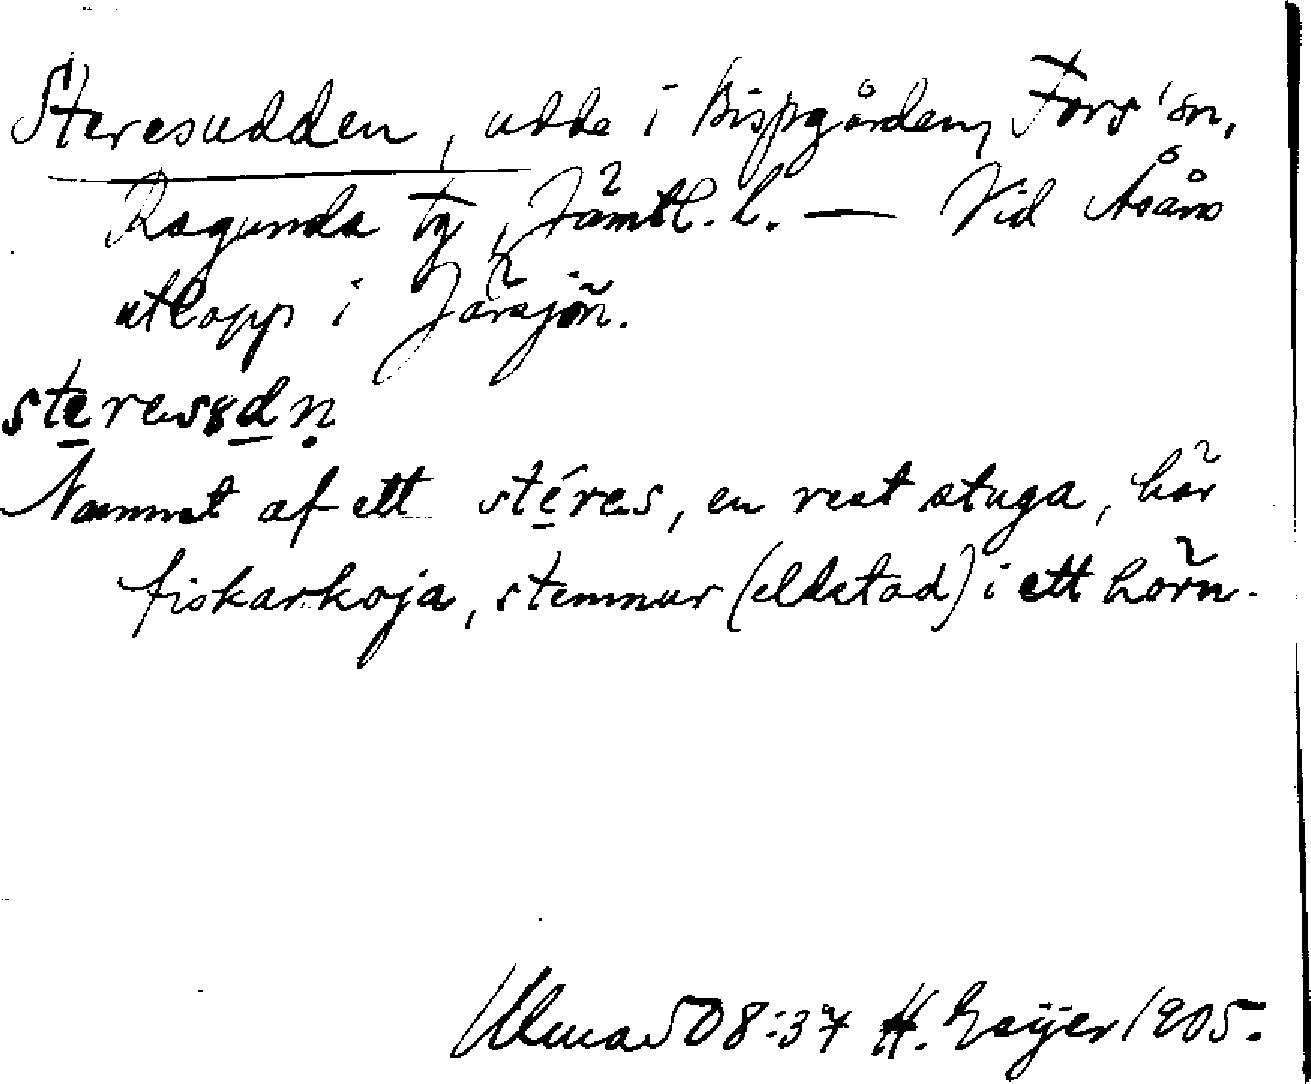 Steresudden, udde i Bispgården, Fors' sn,
Ragunda tg, Jämtl. l. — Vid Åsåns
utlopp i Järsjön.
steresɞdn̥
Namnet af ett stéres, en rest stuga, här
fiskarkoja, stenmur (eldstad) i ett hörn.
Ulma 508:37 H. Geijer 1905.